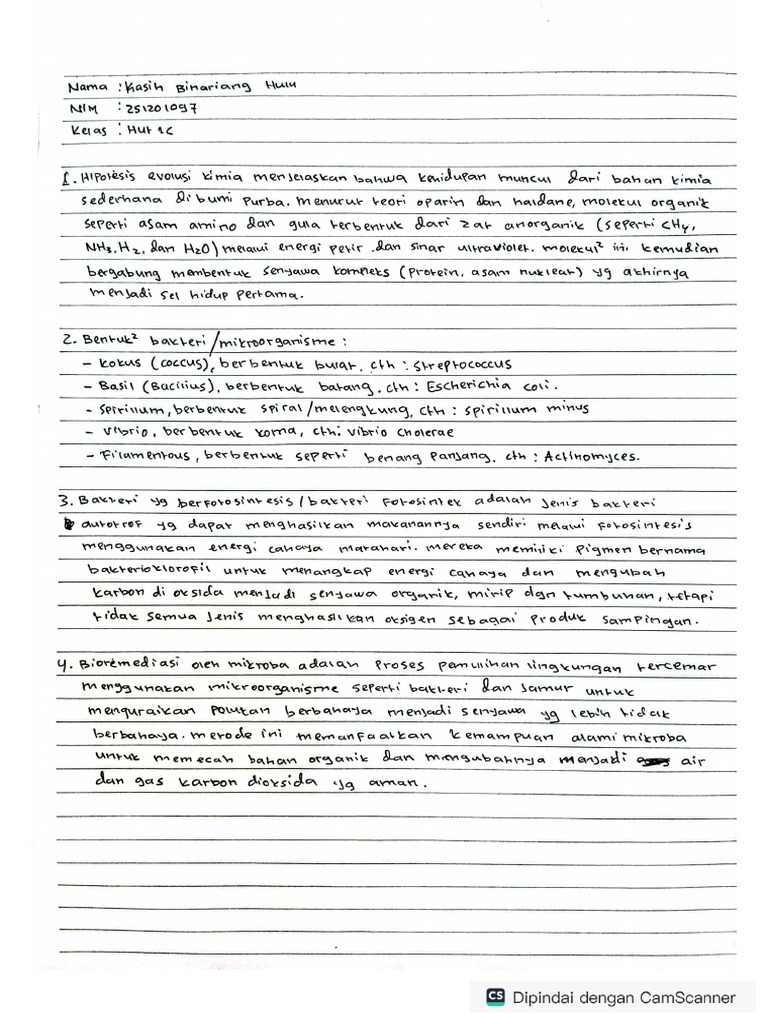 Nama : Kasih Binariang Hulu
NIM : 251201097
Kelas : Hut 1C
1. Hipotesis evolusi kimia menjelaskan bahwa kehidupan muncul dari bahan kimia
sederhana di bumi purba. Menurut teori oparin dan haldane, molekul organik
seperti asam amino dan gula terbentuk dari zat anorganik (seperti CH4,
NH3, H2, dan H2O) melalui energi petir dan sinar ultraviolet. molekul² ini kemudian
bergabung membentuk senyawa kompleks (protein, asam nukleat) yg akhirnya
menjadi sel hidup pertama.
2. Bentuk² bakteri/mikroorganisme :
- Kokus (coccus), berbentuk bulat. cth : Streptococcus
- Basil (Bacillus), berbentuk batang. cth : Escherichia coli.
- Spirillum, berbentuk spiral/melengkung, cth : spirillum minus
- Vibrio, berbentuk koma, cth: vibrio cholerae
- Filamentous, berbentuk seperti benang panjang. cth : Actinomyces.
3. Bakteri yg berfotosintesis/bakteri fotosintek adalah jenis bakteri
autotrof yg dapat menghasilkan makanannya sendiri melalui fotosintesis
menggunakan energi cahaya matahari. mereka memiliki pigmen bernama
bakterioklorofil untuk menangkap energi cahaya dan mengubah
karbon di oksida menjadi senyawa organik, mirip dgn tumbuhan, tetapi
tidak semua jenis menghasilkan oksigen sebagai produk sampingan.
4. Bioremediasi oleh mikroba adalah proses pemulihan lingkungan tercemar
menggunakan mikroorganisme seperti bakteri dan jamur untuk
menguraikan polutan berbahaya menjadi senyawa yg lebih tidak
berbahaya. metode ini memanfaatkan kemampuan alami mikroba
untuk memecah bahan organik dan mengubahnya menjadi air
dan gas karbon dioksida yg aman.
CS Dipindai dengan CamScanner